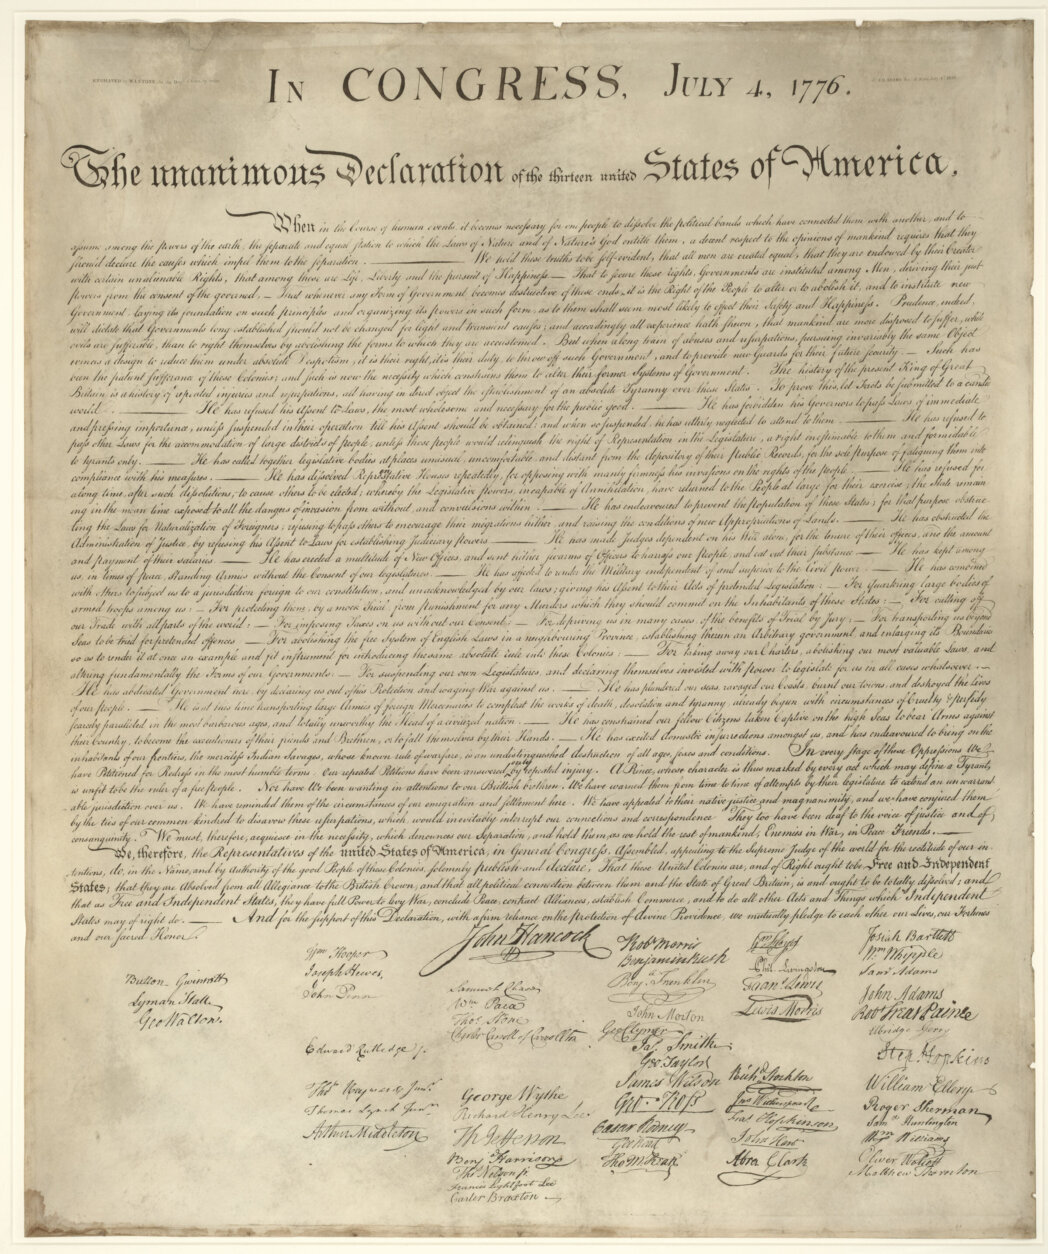 IN CONGRESS, JULY 4, 1776.
The unanimous Declaration of the thirteen united States of America,
When in the Course of human events, it becomes necessary for one people to dissolve the political bands which have connected them with another, and to
assume among the powers of the earth, the separate and equal station to which the Laws of Nature and of Nature's God entitle them, a decent respect to the opinions of mankind requires that they
should declare the causes which impel them to the separation. ——— We hold these truths to be self-evident, that all men are created equal, that they are endowed by their Creator
with certain unalienable Rights, that among these are Life, Liberty and the pursuit of Happiness.— That to secure these rights, Governments are instituted among Men, deriving their just
powers from the consent of the governed, — That whenever any Form of Government becomes destructive of these ends, it is the Right of the People to alter or to abolish it, and to institute new
Government, laying its foundation on such principles and organizing its powers in such form, as to them shall seem most likely to effect their Safety and Happiness. Prudence, indeed,
will dictate that Governments long established should not be changed for light and transient causes; and accordingly all experience hath shewn, that mankind are more disposed to suffer, while
evils are sufferable, than to right themselves by abolishing the forms to which they are accustomed. But when a long train of abuses and usurpations, pursuing invariably the same Object
evinces a design to reduce them under absolute Despotism, it is their right, it is their duty, to throw off such Government, and to provide new Guards for their future security. — Such has
been the patient sufferance of these Colonies; and such is now the necessity which constrains them to alter their former Systems of Government. The history of the present King of Great
Britain is a history of repeated injuries and usurpations, all having in direct object the establishment of an absolute Tyranny over these States. To prove this, let Facts be submitted to a candid
world. ——— He has refused his Assent to Laws, the most wholesome and necessary for the public good. ——— He has forbidden his Governors to pass Laws of immediate
and pressing importance, unless suspended in their operation till his Assent should be obtained; and when so suspended, he has utterly neglected to attend to them. ——— He has refused to
pass other Laws for the accommodation of large districts of people, unless those people would relinquish the right of Representation in the Legislature, a right inestimable to them and formidable
to tyrants only. ——— He has called together legislative bodies at places unusual, uncomfortable, and distant from the depository of their public Records, for the sole purpose of fatiguing them into
compliance with his measures. ——— He has dissolved Representative Houses repeatedly, for opposing with manly firmness his invasions on the rights of the people. ——— He has refused for
a long time, after such dissolutions, to cause others to be elected; whereby the Legislative powers, incapable of Annihilation, have returned to the People at large for their exercise; the State remain
ing in the mean time exposed to all the dangers of invasion from without, and convulsions within. ——— He has endeavoured to prevent the population of these States; for that purpose obstruc
ting the Laws for Naturalization of Foreigners; refusing to pass others to encourage their migrations hither, and raising the conditions of new Appropriations of Lands. ——— He has obstructed the
Administration of Justice, by refusing his Assent to Laws for establishing Judiciary powers. ——— He has made Judges dependent on his Will alone, for the tenure of their offices, and the amount
and payment of their salaries. ——— He has erected a multitude of New Offices, and sent hither swarms of Officers to harass our people, and eat out their substance. ——— He has kept among
us, in times of peace, Standing Armies without the Consent of our legislatures. ——— He has affected to render the Military independent of and superior to the Civil power. ——— He has combined
with others to subject us to a jurisdiction foreign to our constitution, and unacknowledged by our laws; giving his Assent to their Acts of pretended Legislation: — For Quartering large bodies of
armed troops among us: — For protecting them, by a mock Trial, from punishment for any Murders which they should commit on the Inhabitants of these States: — For cutting off
our Trade with all parts of the world: — For imposing Taxes on us without our Consent: — For depriving us in many cases, of the benefits of Trial by Jury: — For transporting us beyond
Seas to be tried for pretended offences — For abolishing the free System of English Laws in a neighbouring Province, establishing therein an Arbitrary government, and enlarging its Boundaries
so as to render it at once an example and fit instrument for introducing the same absolute rule into these Colonies: — For taking away our Charters, abolishing our most valuable Laws, and
altering fundamentally the Forms of our Governments: — For suspending our own Legislatures, and declaring themselves invested with power to legislate for us in all cases whatsoever. —
He has abdicated Government here, by declaring us out of his Protection and waging War against us. ——— He has plundered our seas, ravaged our Coasts, burnt our towns, and destroyed the lives
of our people. — He is at this time transporting large Armies of foreign Mercenaries to compleat the works of death, desolation and tyranny, already begun with circumstances of Cruelty & perfidy
scarcely paralleled in the most barbarous ages, and totally unworthy the Head of a civilized nation. ——— He has constrained our fellow Citizens taken Captive on the high Seas to bear Arms against
their Country, to become the executioners of their friends and Brethren, or to fall themselves by their Hands. ——— He has excited domestic insurrections amongst us, and has endeavoured to bring on the
inhabitants of our frontiers, the merciless Indian Savages, whose known rule of warfare, is an undistinguished destruction of all ages, sexes and conditions. In every stage of these Oppressions We
have Petitioned for Redress in the most humble terms: Our repeated Petitions have been answered only by repeated injury. A Prince, whose character is thus marked by every act which may define a Tyrant,
is unfit to be the ruler of a free people. Nor have We been wanting in attentions to our Brittish brethren. We have warned them from time to time of attempts by their legislature to extend an unwarrant
able jurisdiction over us. We have reminded them of the circumstances of our emigration and settlement here. We have appealed to their native justice and magnanimity, and we have conjured them
by the ties of our common kindred to disavow these usurpations, which, would inevitably interrupt our connections and correspondence. They too have been deaf to the voice of justice and of
consanguinity. We must, therefore, acquiesce in the necessity, which denounces our Separation, and hold them, as we hold the rest of mankind, Enemies in War, in Peace Friends. ———
We, therefore, the Representatives of the united States of America, in General Congress, Assembled, appealing to the Supreme Judge of the world for the rectitude of our in-
tentions, do, in the Name, and by Authority of the good People of these Colonies, solemnly publish and declare, That these United Colonies are, and of Right ought to be Free and Independent
States; that they are Absolved from all Allegiance to the British Crown, and that all political connection between them and the State of Great Britain, is and ought to be totally dissolved; and
that as Free and Independent States, they have full Power to levy War, conclude Peace, contract Alliances, establish Commerce, and to do all other Acts and Things which Independent
States may of right do. ——— And for the support of this Declaration, with a firm reliance on the protection of divine Providence, we mutually pledge to each other our Lives, our Fortunes
and our sacred Honor.
Button Gwinnett
Lyman Hall
Geo Walton.
Wm Hooper
Joseph Hewes,
John Penn
Edward Rutledge
Thos Heyward Junr.
Thomas Lynch Junr.
Arthur Middleton
John Hancock
Samuel Chase
Wm Paca
Thos Stone
Charles Carroll of Carrollton
George Wythe
Richard Henry Lee
Th Jefferson
Benj Harrison
Thos Nelson jr
Francis Lightfoot Lee
Carter Braxton
Robt Morris
Benjamin Rush
Benj Franklin
John Morton
Geo Clymer
Jas Smith
Geo Taylor
James Wilson
Geo Ross
Caesar Rodney
Geo Read
Tho M:Kean
Wm Floyd
Phil. Livingston
Frans Lewis
Lewis Morris
Richd Stockton
Jno Witherspoon
Fras Hopkinson
John Hart
Abra Clark
Josiah Bartlett
Wm Whipple
Saml Adams
John Adams
Robt Treat Paine
Elbridge Gerry
Step Hopkins
William Ellery
Roger Sherman
Saml Huntington
Wm Williams
Oliver Wolcott
Matthew Thornton